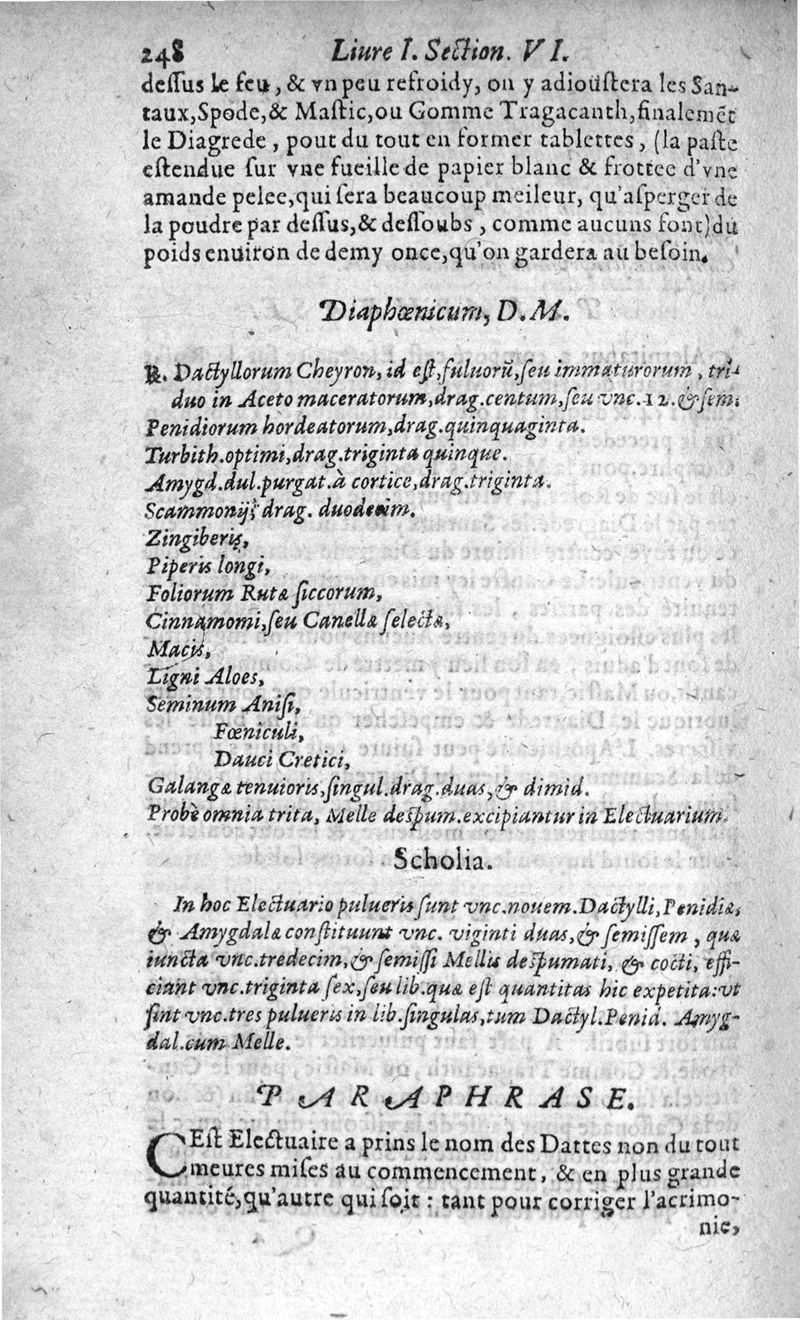 248 Liure I. Section. VI.
dessus le feu, & vn peu refroidy, on y adioustera les San-
taux, Spode, & Mastic, ou Gomme Tragacanth, finalemēt
le Diagrede, pout du tout en former tablettes, (la paste
estendue sur vne fueille de papier blanc & frottee d'vne
amande pelee, qui sera beaucoup meileur, qu'asperger de
la poudre par dessus, & dessoubs, comme aucuns font) du
poids enuiron de demy once, qu'on gardera au besoin.
Diaphœnicum, D. M.
℞. Dactyllorum Cheyron, id est, fuluorū, seu immaturorum, tri-
duo in Aceto maceratorum, drag. centum, seu vnc. 12. & sem.
Penidiorum hordeatorum, drag. quinquaginta.
Turbith. optimi, drag. triginta quinque.
Amygd. dul. purgat. à cortice, drag. triginta.
Scammonij, drag. duodecim.
Zingiberis,
Piperis longi,
Foliorum Rutæ siccorum,
Cinnamomi, seu Canellæ selectæ,
Macis,
Ligni Aloes,
Seminum Anisi,
Fœniculi,
Dauci Cretici,
Galangæ tenuioris, singul. drag. duas, & dimid.
Probè omnia trita, Melle despum. excipiantur in Electuarium.
Scholia.
In hoc Electuario pulueris sunt vnc. nouem. Dactylli, Penidiæ,
& Amygdalæ constituunt vnc. viginti duas, & semissem, quæ
iuncta vnc. tredecim, & semissi Mellis despumati, & cocti, effi-
ciant vnc. triginta sex, seu lib. quæ est quantitas hic expetita: vt
sint vnc. tres pulueris in lib. singulas, tum Dactyl. Penid. Amyg-
dal. cum Melle.
PARAPHRASE.
CEst Electuaire a prins le nom des Dattes non du tout
meures mises au commencement, & en plus grande
quantité, qu'autre qui soit : tant pour corriger l'acrimo-
nie,